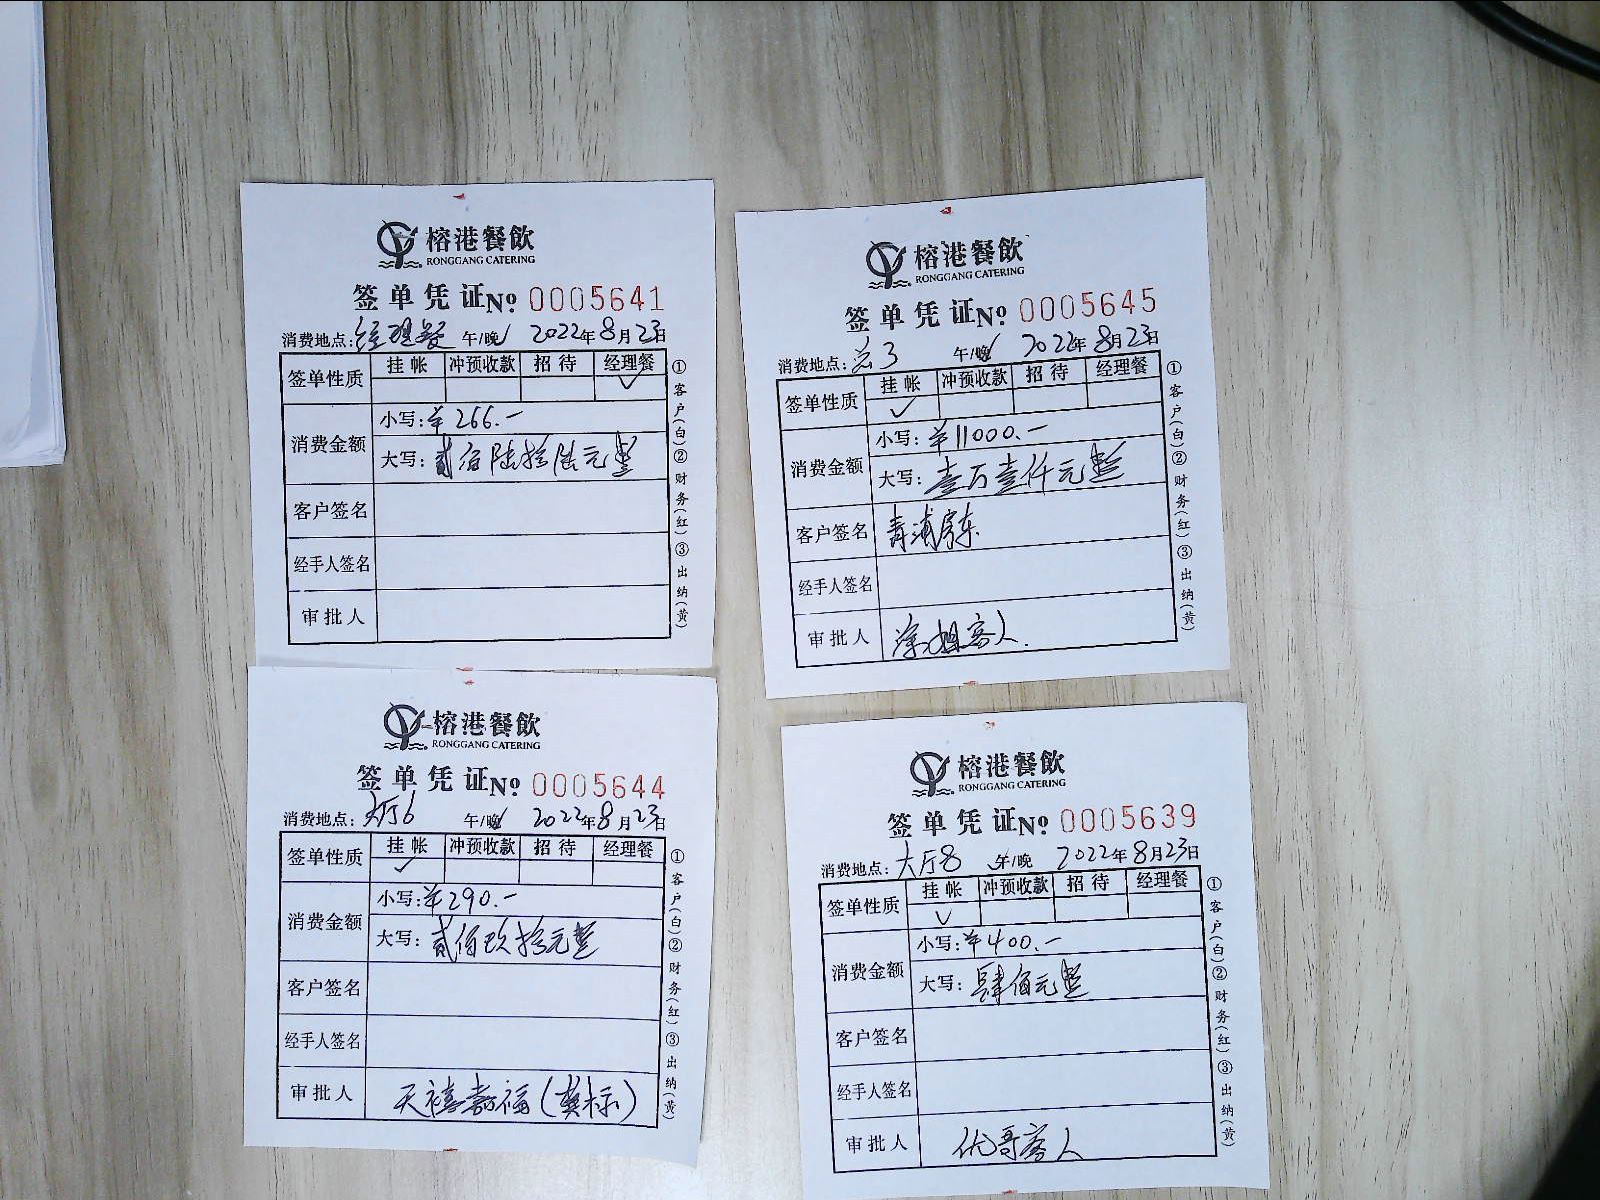 榕港餐飲
RONGGANG CATERING
签单凭证 No. 0005641
消费地点: 经理餐 午/晚 2022年8月23日
签单性质 挂帐 冲预收款 招待 经理餐
✓
消费金额
小写: ¥266.-
大写: 贰佰陆拾陆元整
客户签名
经手人签名
审批人
①客户(白)②财务(红)③出纳(黄)
榕港餐飲
RONGGANG CATERING
签单凭证 No. 0005645
消费地点: 芸3 午/晚 2022年8月23日
签单性质 挂帐 冲预收款 招待 经理餐
✓
消费金额
小写: ¥11000.-
大写: 壹万壹仟元整
客户签名 青浦房东
经手人签名
审批人 涂姐客人.
①客户(白)②财务(红)③出纳(黄)
榕港餐飲
RONGGANG CATERING
签单凭证 No. 0005644
消费地点: 大厅6 午/晚 2022年8月23日
签单性质 挂帐 冲预收款 招待 经理餐
✓
消费金额
小写: ¥290.-
大写: 贰佰玖拾元整
客户签名
经手人签名
审批人 天禧嘉福(龚标)
①客户(白)②财务(红)③出纳(黄)
榕港餐飲
RONGGANG CATERING
签单凭证 No. 0005639
消费地点: 大厅8 午/晚 2022年8月23日
签单性质 挂帐 冲预收款 招待 经理餐
✓
消费金额
小写: ¥400.-
大写: 肆佰元整
客户签名
经手人签名
审批人 优哥客人
①客户(白)②财务(红)③出纳(黄)